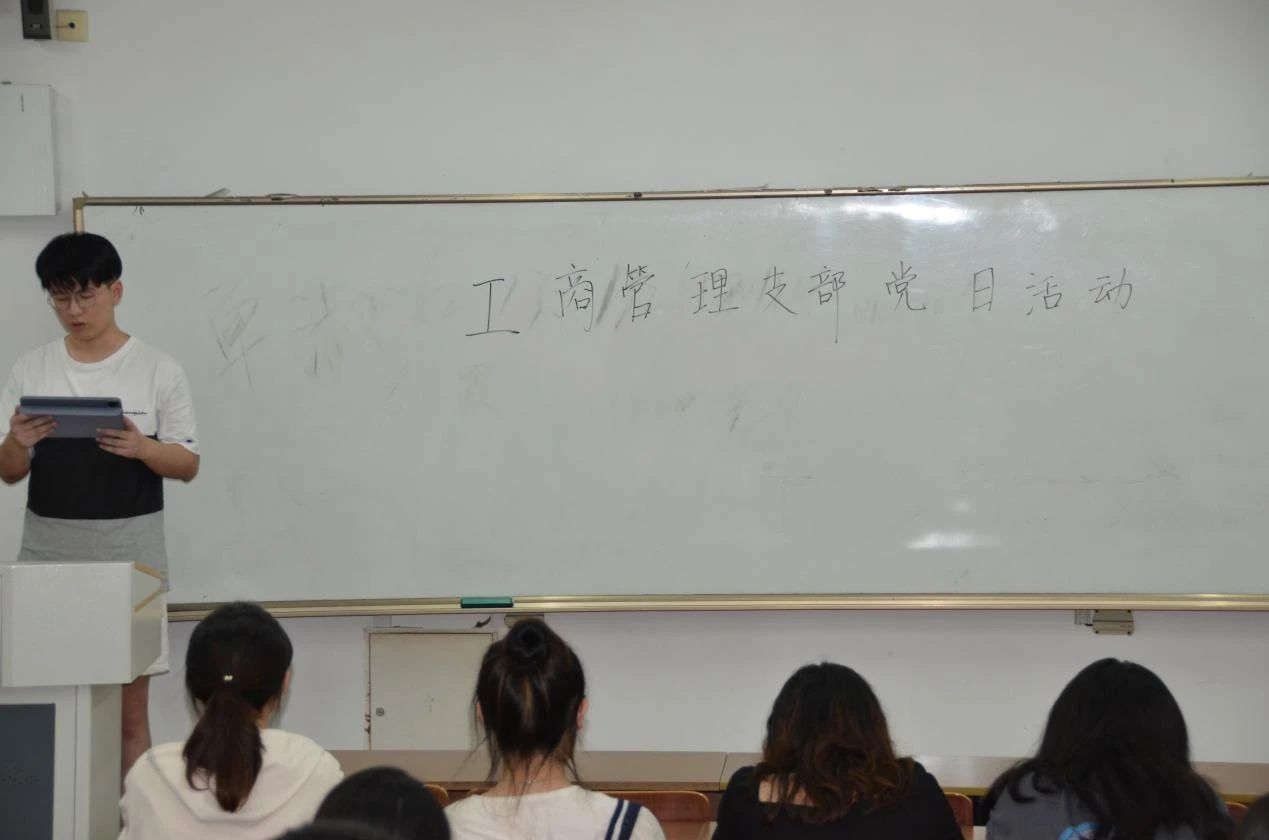 工商管理支部党日活动